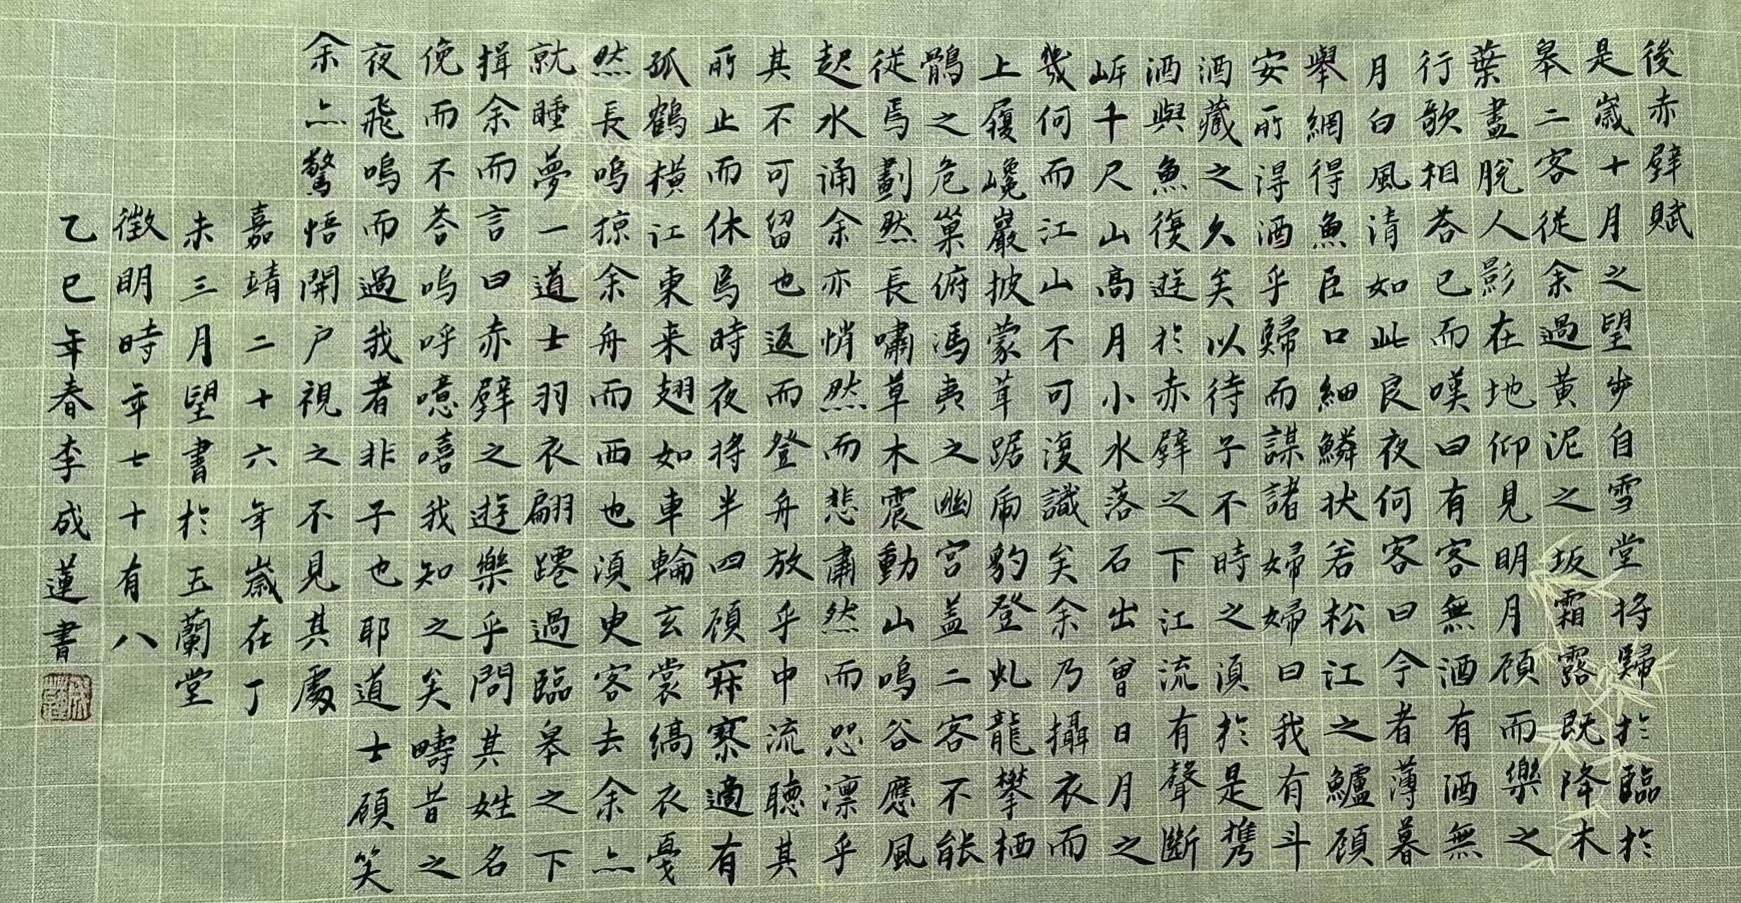 後赤壁賦
是歲十月之望步自雪堂将歸於臨於
皋二客從余過黃泥之坂霜露既降木
葉盡脫人影在地仰見明月顧而樂之
行歌相荅已而嘆曰有客無酒有酒無
月白風清如此良夜何客曰今者薄暮
舉網得魚巨口細鱗狀若松江之鱸顧
安所得酒乎歸而謀諸婦婦曰我有斗
酒藏之久矣以待子不時之須於是携
酒與魚復遊於赤壁之下江流有聲斷
岸千尺山高月小水落石出曾日月之
幾何而江山不可復識矣余乃攝衣而
上履巉巖披蒙茸踞虎豹登虬龍攀栖
鶻之危巢俯馮夷之幽宮盖二客不能
從焉劃然長嘯草木震動山鳴谷應風
起水涌余亦悄然而悲肅然而恐凛乎
其不可留也返而登舟放乎中流聽其
所止而休焉時夜将半四顧寂寥適有
孤鶴横江東来翅如車輪玄裳縞衣戛
然長嗚掠余舟而西也須臾客去余亦
就睡夢一道士羽衣翩躚過臨皋之下
揖余而言曰赤壁之遊樂乎問其姓名
俛而不荅嗚呼噫嘻我知之矣疇昔之
夜飛嗚而過我者非子也耶道士顧笑
余亦驚悟開户視之不見其處
嘉靖二十六年歲在丁
未三月望書於玉蘭堂
徵明時年七十有八
乙巳年春李成蓮書